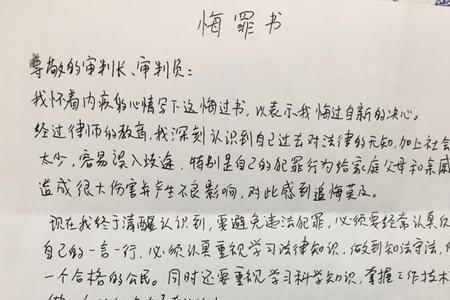 悔罪书
尊敬的审判长、审判员:
我怀着内疚的心情写下这悔过书,以表示我悔过自新的决心。
经过律师的教育,我深刻认识到自己过去对法律的无知,加上社会
太少,容易误入歧途,特别是自己的犯罪行为给家庭父母和亲戚
造成很大伤害并产生不良影响,对此感到追悔莫及。
现在我终于清醒认识到,要避免违法犯罪,必须要经常认真反
自己的一言一行,必须认真重视学习法律知识,做到知法守法,
一个合格的公民。同时还要重视学习科学知识,掌握工作技术